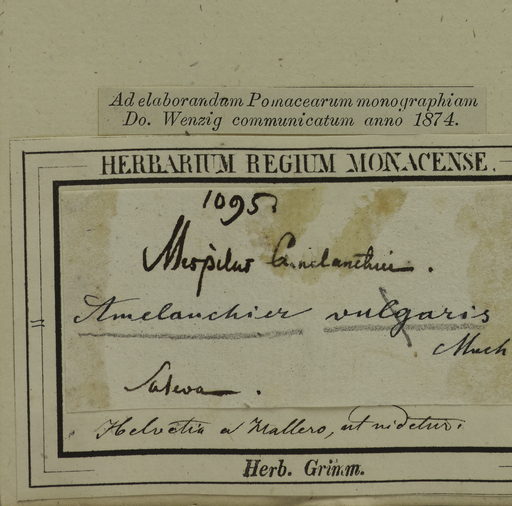 Ad elaborandam Pomacearum monographiam
Do. Wenzig communicatum anno 1874.
HERBARIUM REGIUM MONACENSE.
1095.
Mespilus Amelanchier.
Amelanchier vulgaris
Mnch
Helvetia a Hallero, ut videtur.
Herb. Grimm.